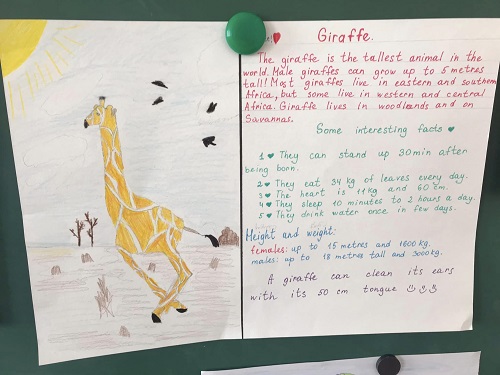 Giraffe.
The giraffe is the tallest animal in the
world. Male giraffes can grow up to 5 metres
tall! Most giraffes live in eastern and southern
Africa, but some live in western and central
Africa. Giraffe lives in woodlands and on
Savannas.
Some interesting facts
1 They can stand up 30 min after
being born.
2 They eat 34 kg of leaves every day.
3 The heart is 11 kg and 60 cm.
4 They sleep 10 minutes to 2 hours a day.
5 They drink water once in few days.
Height and weight:
females: up to 15 metres and 1600 kg.
males: up to 18 metres tall and 3000 kg.
A giraffe can clean its ears
with its 50 cm tongue